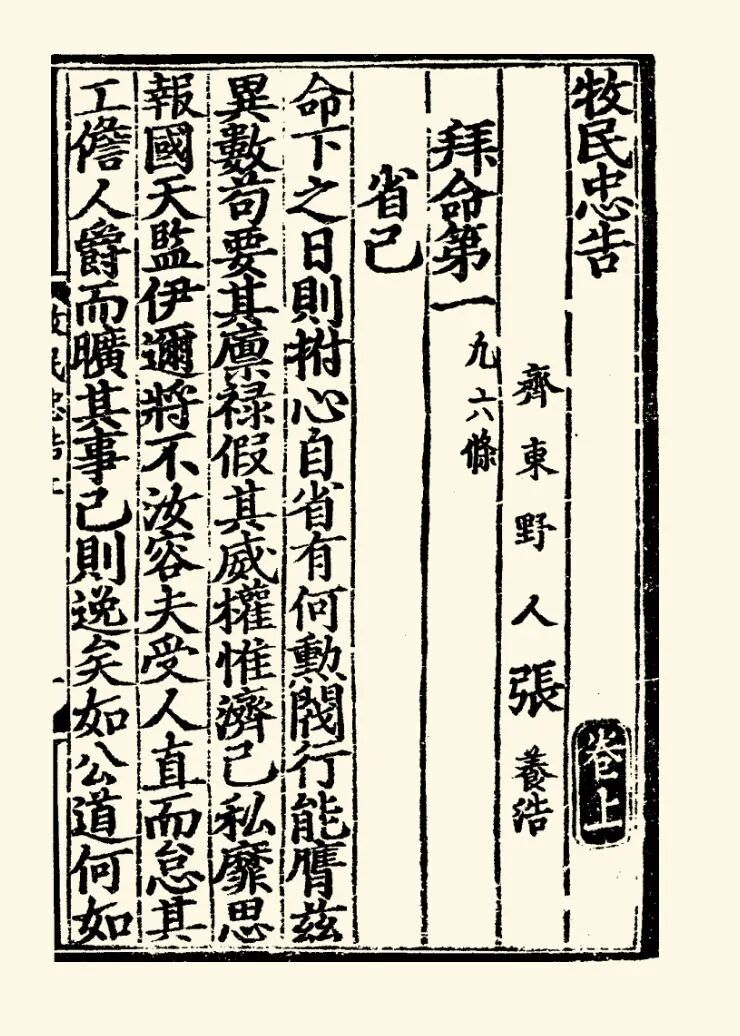 牧民忠告 卷上
齊東野人張養浩
拜命第一 凢六條
省己
命下之日則拊心自省有何勲閥行能膺茲
異數苟要其廩禄假其威權惟濟己私靡思
報國天監伊邇將不汝容夫受人直而怠其
工儋人爵而曠其事己則逸矣如公道何如